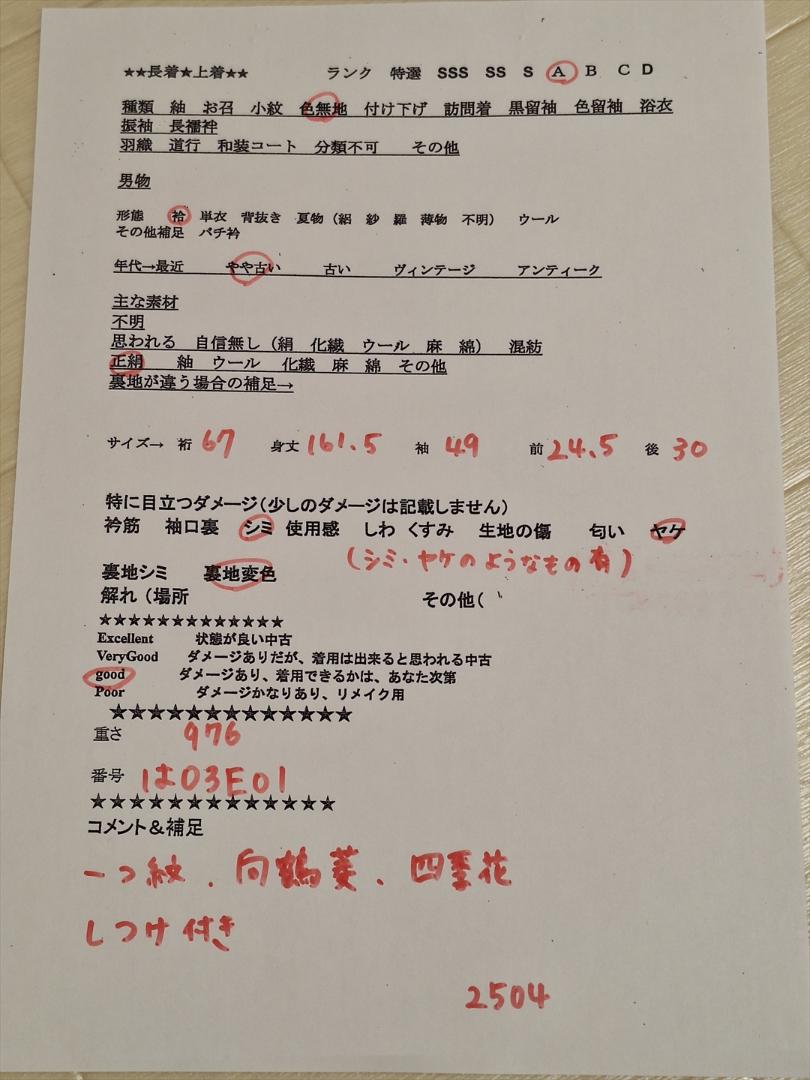 ★★長着★上着★★ ランク 特選 SSS SS S A B C D
種類 紬 お召 小紋 色無地 付け下げ 訪問着 黒留袖 色留袖 浴衣
振袖 長襦袢
羽織 道行 和装コート 分類不可 その他
男物
形態 袷 単衣 背抜き 夏物（絽 紗 羅 薄物 不明） ウール
その他補足 バチ衿
年代→最近 やや古い 古い ヴィンテージ アンティーク
主な素材
不明
思われる 自信無し（絹 化繊 ウール 麻 綿） 混紡
正絹 紬 ウール 化繊 麻 綿 その他
裏地が違う場合の補足→
サイズ→ 裄 67 身丈 161.5 袖 49 前 24.5 後 30
特に目立つダメージ（少しのダメージは記載しません）
衿筋 袖口裏 シミ 使用感 しわ くすみ 生地の傷 匂い ヤケ
（シミ・ヤケのようなもの有）
裏地シミ 裏地変色
解れ（場所 その他（
★★★★★★★★★★★★★
Excellent 状態が良い中古
VeryGood ダメージありだが、着用は出来ると思われる中古
good ダメージあり、着用できるかは、あなた次第
Poor ダメージかなりあり、リメイク用
★★★★★★★★★★★★★
重さ 976
番号 は03E01
★★★★★★★★★★★★★
コメント＆補足
一つ紋、向鶴菱、四季花
しつけ付き
2504